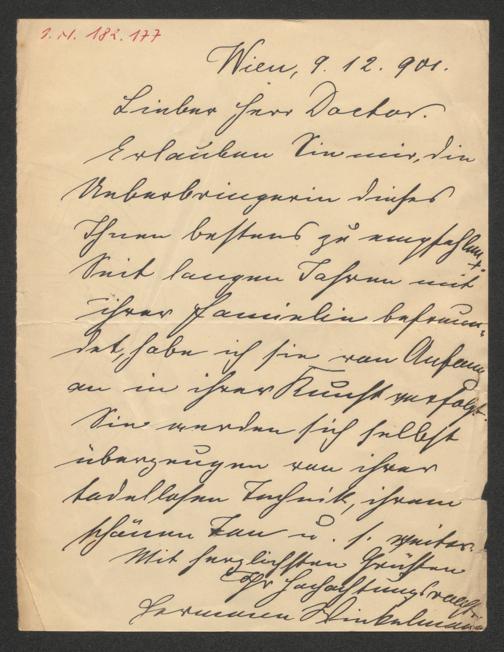 I. N. 182.177
Wien, 9. 12. 901.
Lieber Herr Doctor.
Erlauben Sie mir, die
Ueberbringerin dieses
Ihnen bestens zu empfehlen.
Seit langen Jahren mit
ihrer Familie befreun-
det, habe ich sie von Anfang
an in ihrer Kunst verfolgt.
Sie werden sich selbst
überzeugen von ihrer
tadellosen Technik, ihrem
schönen Ton u. s. weiter.
Mit herzlichsten Grüßen
Ihr hochachtungsvoll
Hermann Winkelmann